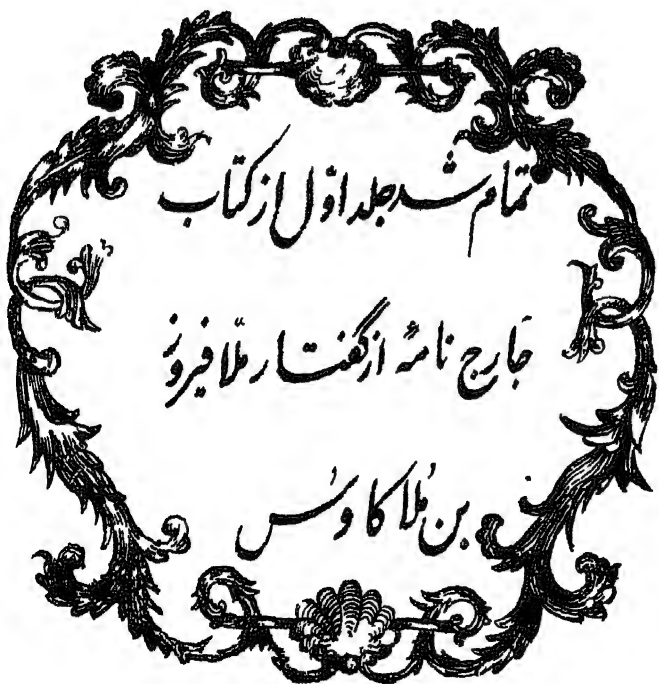 تمام شد جلد اوّل از کتاب
جارج نامهٔ از گفتار ملّا فیروز
بن مُلّا کاوُس